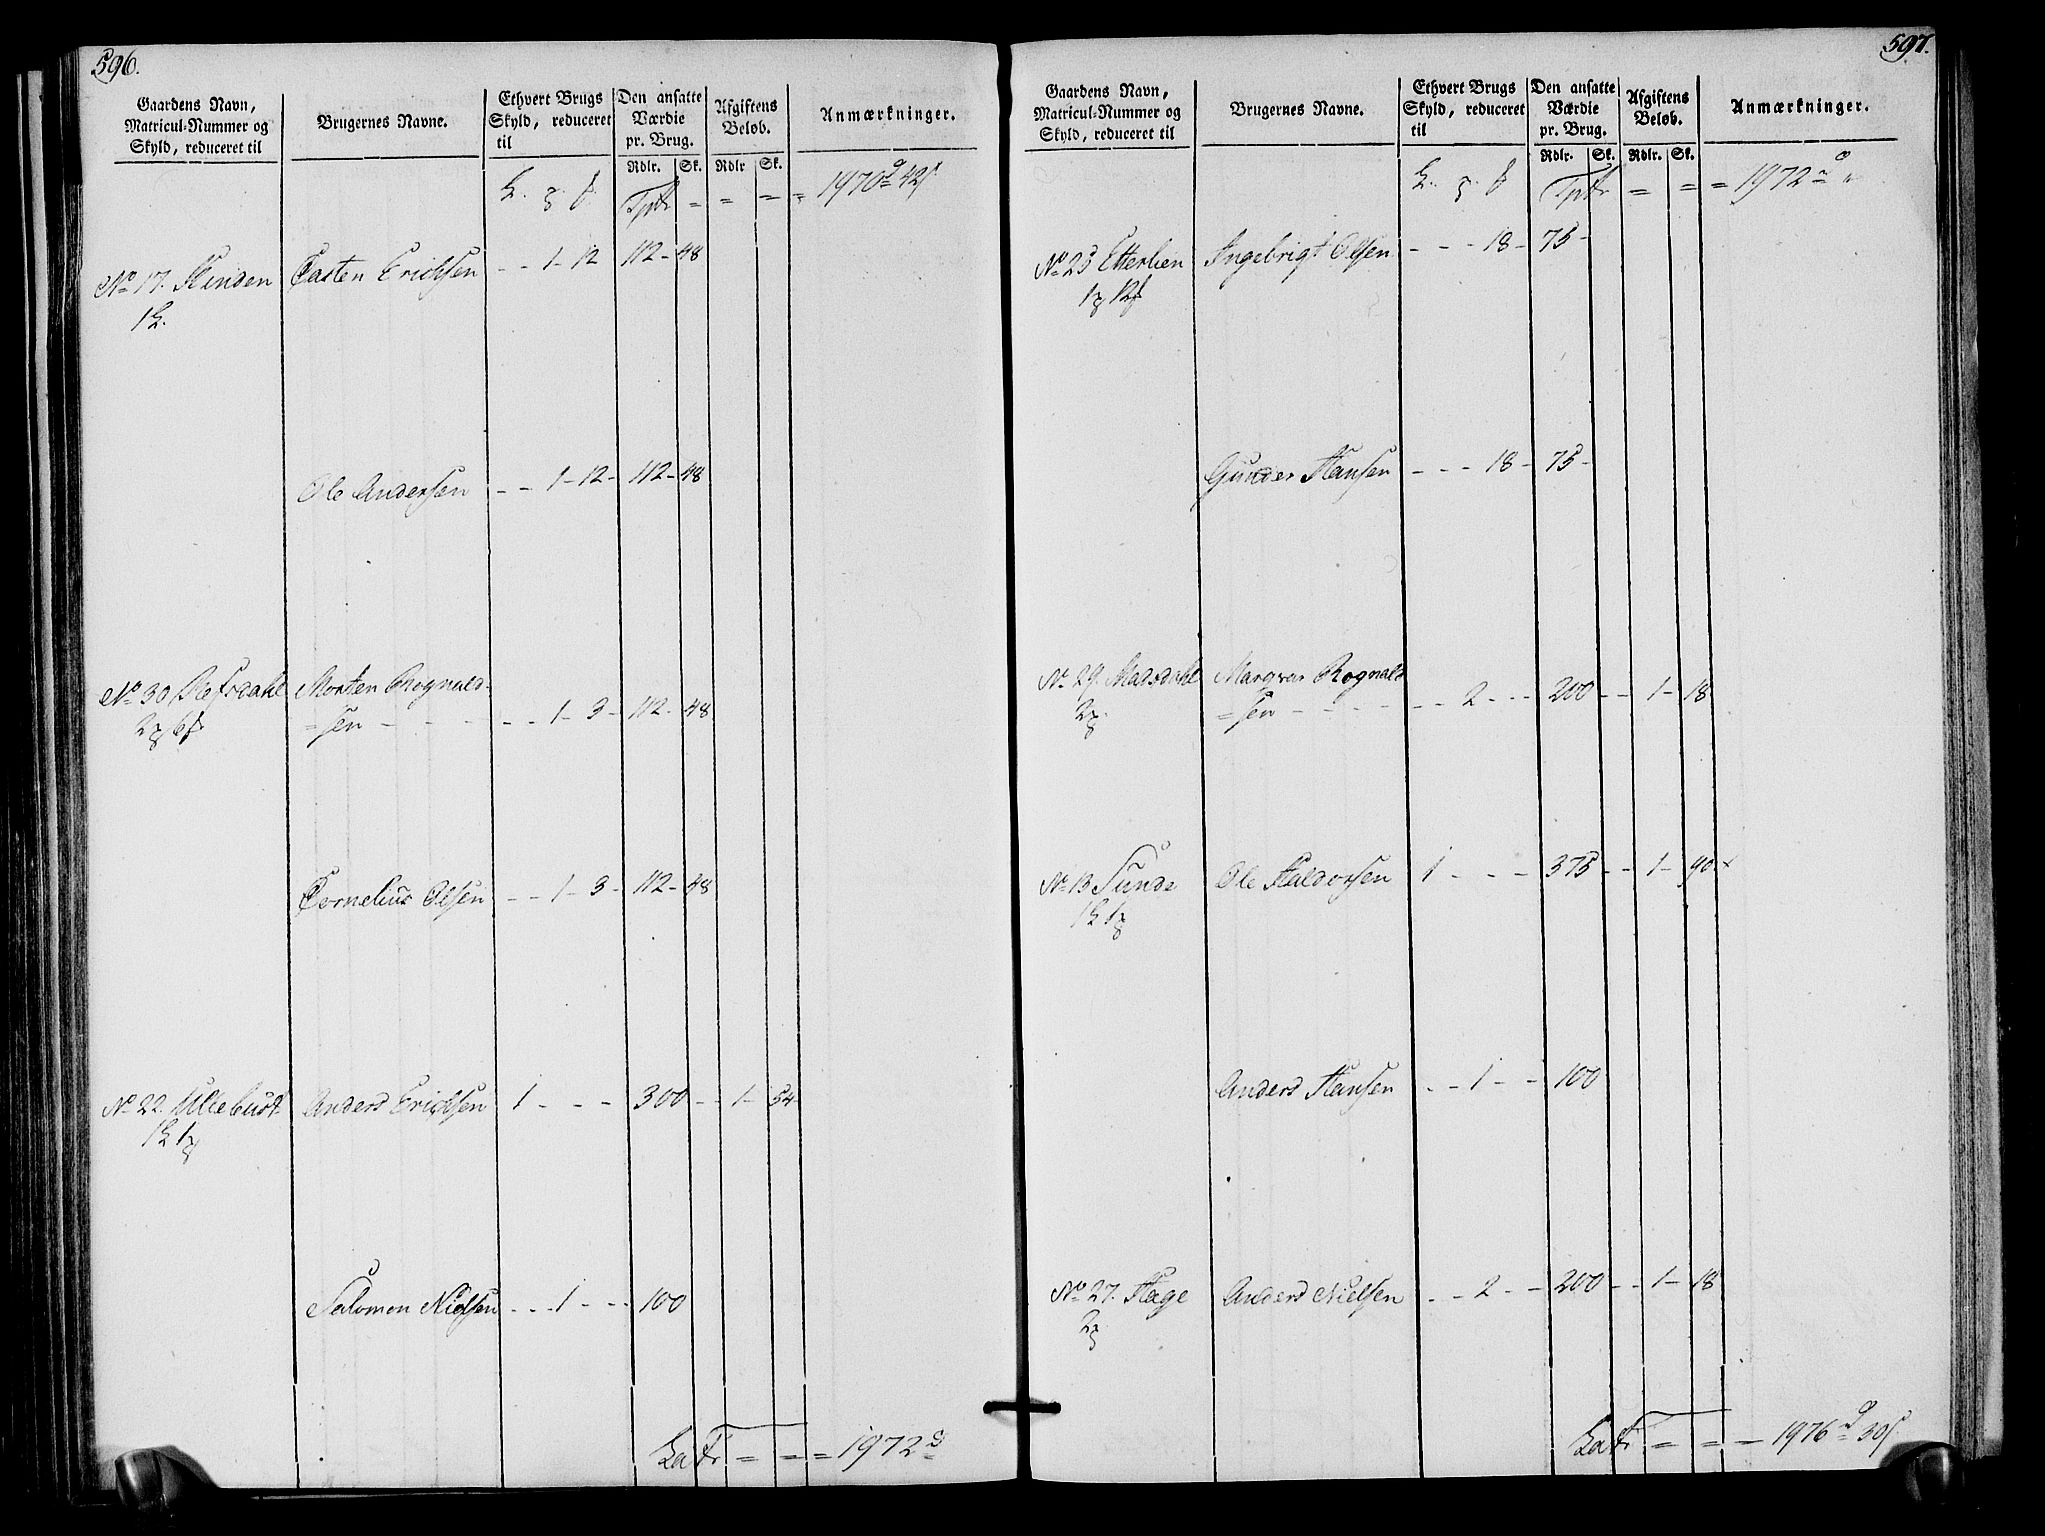 596.
Gaardens Navn, Matricul-Nummer og Skyld, reduceret til
Brugernes Navne.
Ethvert Brugs Skyld, reduceret til
Den ansatte Værdie pr. Brug.
Afgiftens Beløb.
Anmærkninger.
Rdlr. Sk. Rdlr Sk.
Tptr = = = = 1970 42
No 17. Hinden Casten Erichsen - - 1 - 12 112 - 48
Ole Andersen - - 1 - 12 - 112 - 48
No 30 Refsdahl Morten Rognald-
=sen - - - - - 1 - 3 - 112 - 48
Cornelius Olsen - - 1 - 3 - 112 - 48
No 22. Ullebust Anders Erichsen 1 - - - 300 - - 1 - 54
Salomon Nielsen - - - 1 - - - 100
LaTr = = = 1972
597.
Gaardens Navn, Matricul-Nummer og Skyld, reduceret til
Brugernes Navne.
Ethvert Brugs Skyld, reduceret til
Den ansatte Værdie pr. Brug.
Afgiftens Beløb.
Anmærkninger.
Rdlr. Sk. Rdlr. Sk.
Tptr = = = 1972
No 23 Etterlien Ingebrigt Olsen - - - 18 - 75 -
Gunder Hansen - - - 18 - 75 -
No 29. Madsdahl Rognald
=sen - - - - - - 2 - - 200 - - 1 - 18
No 13 Sunde Ole Haldorsen 1 - - - 375 - - 1 - 90
Anders Hansen - - 1 - - 100
No 27. Hage Anders Nielsen - - 2 - - 200 - - 1 - 18
LaTr = = - 1976 30